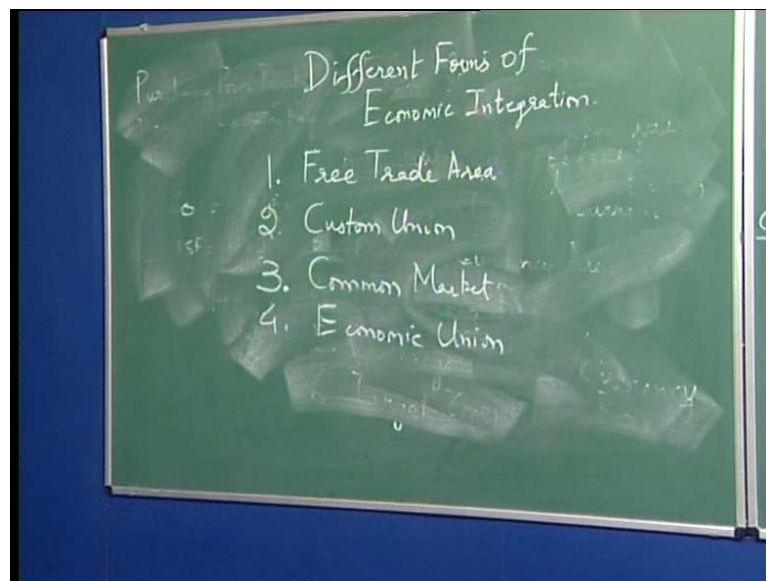 Different Forms of
Economic Integration.
1. Free Trade Area
2. Custom Union
3. Common Market
4. Economic Union
Currency